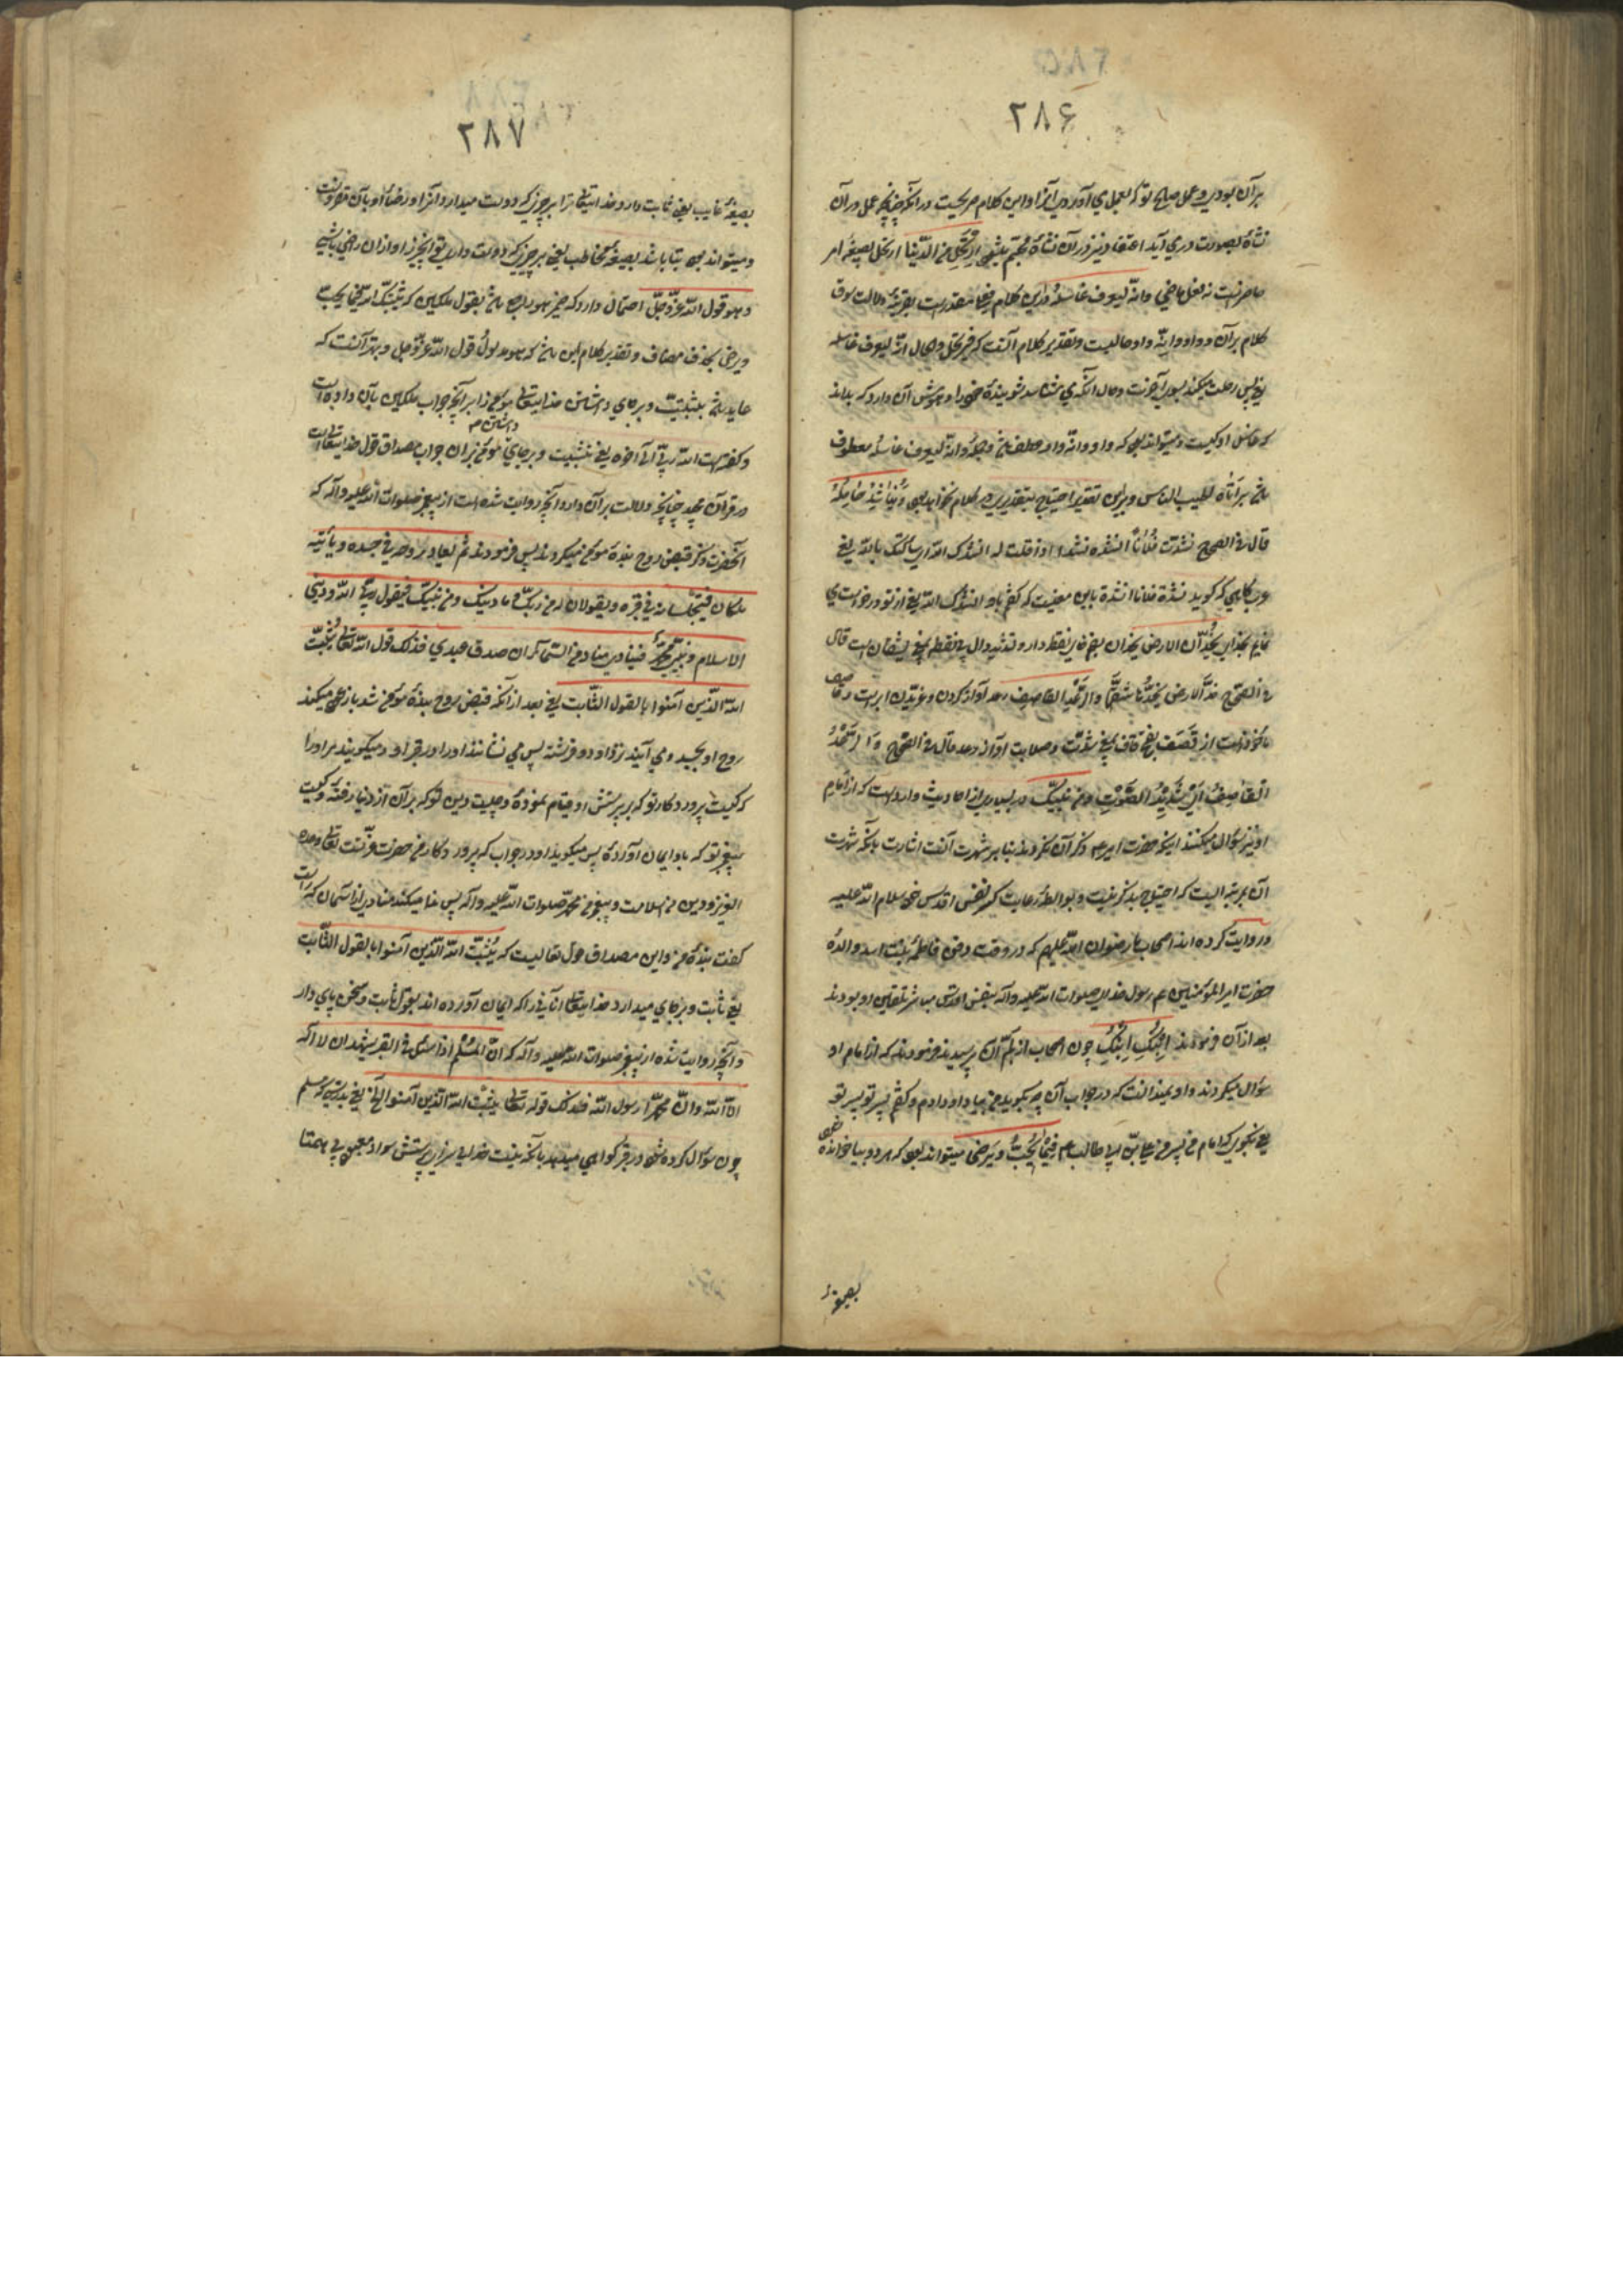 ۲۸۶
بر آن بودی و عمل صالح تو که بعمل می آوردی آنرا و این کلام صریحست در آنکه چنانچه عمل در آن
نشأه بصورت دری آید اعتقاد نیز در آن نشأه مجسم میشود ارتحل من الدنیا ارتحل بصیغهٔ امر
حاضر است نه فعل ماضی وانه لیعرف غاسله در این کلام مقدر است بقرینهٔ دلالت سوق
کلام بر آن و واو وانه واو حالیست و تقدیر کلام آنست که فیرتحل والحال انه لیعرف غاسله
یعنی پس رحلت میکند بسوی آخرت و حال آنکه می شناسد شویندهٔ خود را و هوش آن دارد که بداند
که غاسل او کیست و میتواند بود که واو وانه واو عطف باشد و جملهٔ وانه لیعرف غاسله معطوف
باشد بر اتاه اطیب الناس و برین تقدیر احتیاج بتقدیری در کلام نخواهد بود ویناشد حامله
قال فی الصحاح نشدت فلانا انشده نشدا اذا قلت له انشدک الله ای سألتک بالله یعنی
عرب گاهی که گوید نشدة فلانا انشدة باین معنیست که گفتم باو انشدک الله یعنی از تو درخواست می
نمایم بخدای یخدان الارض یخدان بفتح خای نقطه دار و تشدید دال بی نقطه یعنی یشقان است قال
فی الصحاح خد الارض یخدها شقها والرعد القاصف رعد آواز کردن و غریدن ابر است و قاصف
مأخوذ است از قصف بفتح قاف یعنی شدت و صلابت آواز رعد قال فی الصحاح والرعد
القاصف ای شدید الصوت ومن نبیک در بسیاری از احادیث وارد است که از امام
او نیز سؤال میکنند اینکه حضرت امیر عم ذکر آن نکردند بنابر شهرت آنست اشارت بآنکه شهرت
آن بمرتبه ایست که احتیاج بذکر نیست و بواسطهٔ رعایت کسر نفس اقدس خود سلام الله علیه
و روایت کرده اند اصحاب ما رضوان الله علیهم که در وقت دفن فاطمهٔ بنت اسد والدهٔ
حضرت امیر المؤمنین عم رسول خدا صلوات الله علیه وآله بنفس اقدس مباشر تلقین او بودند
بعد از آن فرمودند ابنک ابنک چون اصحاب از لم آن پرسیدند فرمودند که از امام او
سؤال میکردند و او نمیدانست که در جواب آن چه بگوید من بیاد او دادم و گفتم پسر تو پسر تو
یعنی بگوی که امام من پسر من علی بن ابی طالب عم فیما یحب و یرضی میتواند بود که هر دو بیا خوانده شود
بصیغهٔ
۲۸۷
بصیغهٔ غایب یعنی ثابت دارد خدایتعالی ترا بر چیزی که دوست میدارد آنرا و رضای او بآن مقرونست
و میتواند بود بتا باشد بصیغهٔ مخاطب یعنی بر چیزی که دوست داری تو آنچیز را و از آن راضی باشی
وهو قول الله عز وجل احتمال دارد که ضمیر هو راجع باشد بقول ملکین که ثبتک الله فیما یحب
ویرضی بحذف مضاف و تقدیر کلام این باشد که هو مدلول قول الله عز وجل و بهتر آنست که
عاید باشد بتثبیت و برجای داشتن خدایتعالی مؤمن را بر آنچه جواب ملکین بآن داده است
و گفته است الله ربی الی آخره یعنی تثبیت و برجای داشتن مؤمن بر آن جواب مصداق قول خدایتعالی است
در قرآن مجید چنانچه دلالت بر آن دارد آنچه روایت شده است از پیغمبر صلوات الله علیه وآله که
آنحضرت ذکر قبض روح بندهٔ مؤمن میکردند پس فرمودند ثم یعاد روحه فی جسده ویأتیه
ملکان فیجلسانه فی قبره ویقولان له من ربک وما دینک ومن نبیک فیقول ربی الله ودینی
الاسلام ونبیی محمد فینادی مناد من السماء ان صدق عبدی فذلک قول الله تعالی یثبت
الله الذین آمنوا بالقول الثابت یعنی بعد از آنکه قبض روح بندهٔ مؤمن شد باز عود میکند
روح او بجسد و می آیند نزد او دو فرشته پس می نشانند او را در قبر او و میگویند مر او را
که کیست پروردگار تو که بر پرستش او قیام نمودهٔ و چیست دین تو که بر آن از دنیا رفتهٔ و کیست
پیغمبر تو که باو ایمان آوردهٔ پس میگوید او در جواب که پروردگار من حضرت عزت تعالی وحده
العزیز و دین من اسلامست و پیغمبر من محمد صلوات الله علیه وآله پس ندا میکند منادی از آسمان که راست
گفت بندهٔ من و این مصداق قول تعالیست که یثبت الله الذین آمنوا بالقول الثابت
یعنی ثابت و برجای میدارد خدایتعالی آنانی را که ایمان آورده اند بقول ثابت و سخن پای دار
و آنچه روایت شده از پیغمبر صلوات الله علیه وآله که ان المسلم اذا سئل فی القبر یشهد ان لا اله
الا الله وان محمدا رسول الله فذلک قوله تعالی یثبت الله الذین آمنوا الخ یعنی بدرستی که مسلم
چون سؤال کرده شود در قبر گواهی میدهد بآنکه نیست خدایی سزای پرستش سوا معبود بی همتا